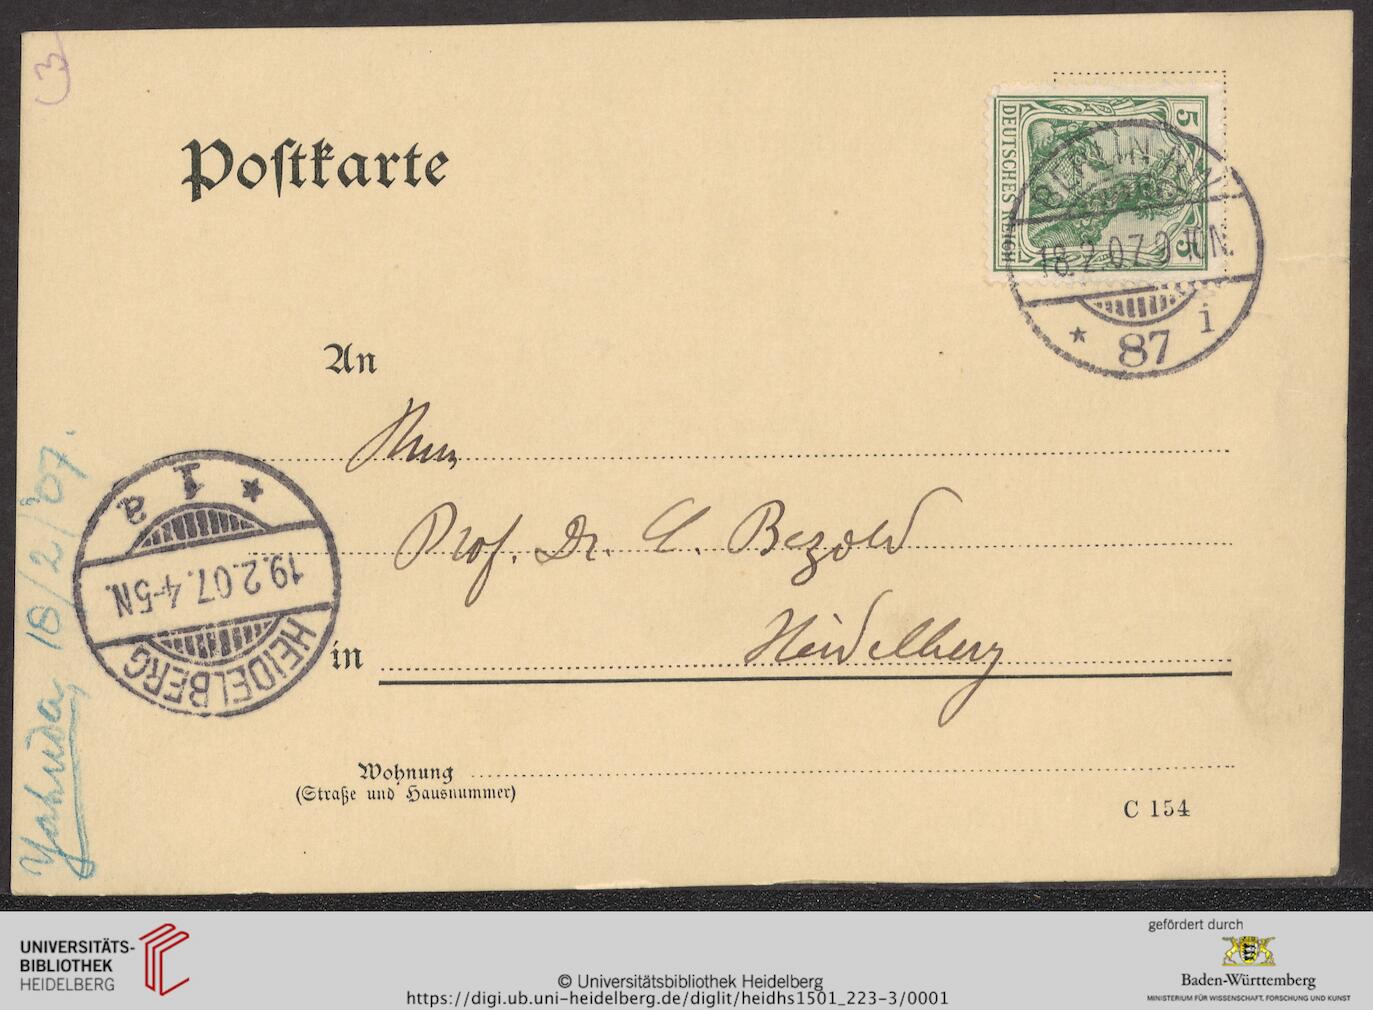 3
Postkarte
DEUTSCHES REICH
5
5
BERLIN N.W.
18.2.07.9-10N.
* 87 i
An
Herrn
Prof. Dr. C. Bezold
in Heidelberg
Wohnung
(Straße und Hausnummer)
C 154
HEIDELBERG
19.2.07.4-5N.
* 1 a
Yahuda, 18/2/'07.
UNIVERSITÄTS-
BIBLIOTHEK
HEIDELBERG
© Universitätsbibliothek Heidelberg
https://digi.ub.uni-heidelberg.de/diglit/heidhs1501_223-3/0001
gefördert durch
Baden-Württemberg
MINISTERIUM FÜR WISSENSCHAFT, FORSCHUNG UND KUNST